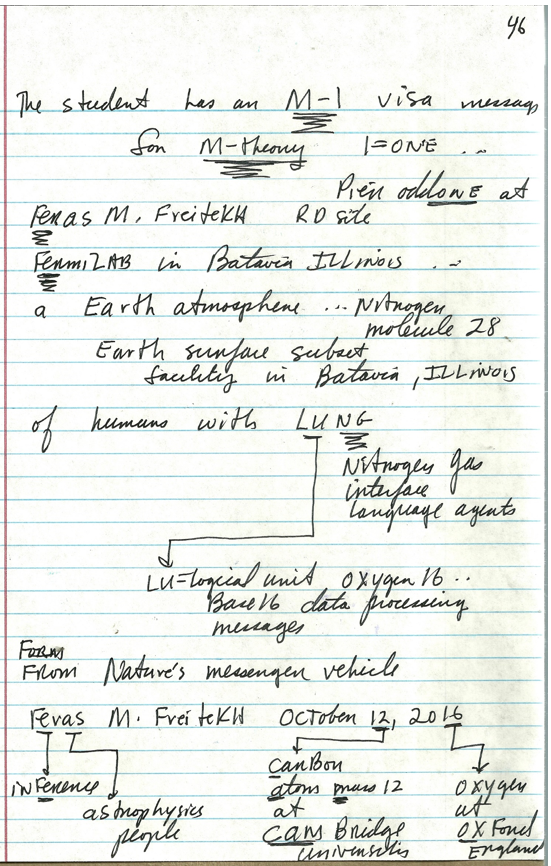 46
The student has an M-1 visa message
for M-theory 1=ONE ...
Pier oddONE at
Feras M. FreiteKH RD site
FermiLAB in Batavia ILLinois ...
a Earth atmosphere ... Nitrogen
molecule 28
Earth surface subset
facility in Batavia, ILLinois
of humans with LUNG
Nitrogen gas
interface
language agents
LU=logical unit oxygen 16 ..
Base 16 data processing
messages
FORM
FROM Nature's messenger vehicle
Feras M. FreiteKH OCTOBER 12, 2016
inFerence
astrophysics
people
CarBon
atom mass 12
at
CAM Bridge
Universitis
OXygen
at
OXFord
England